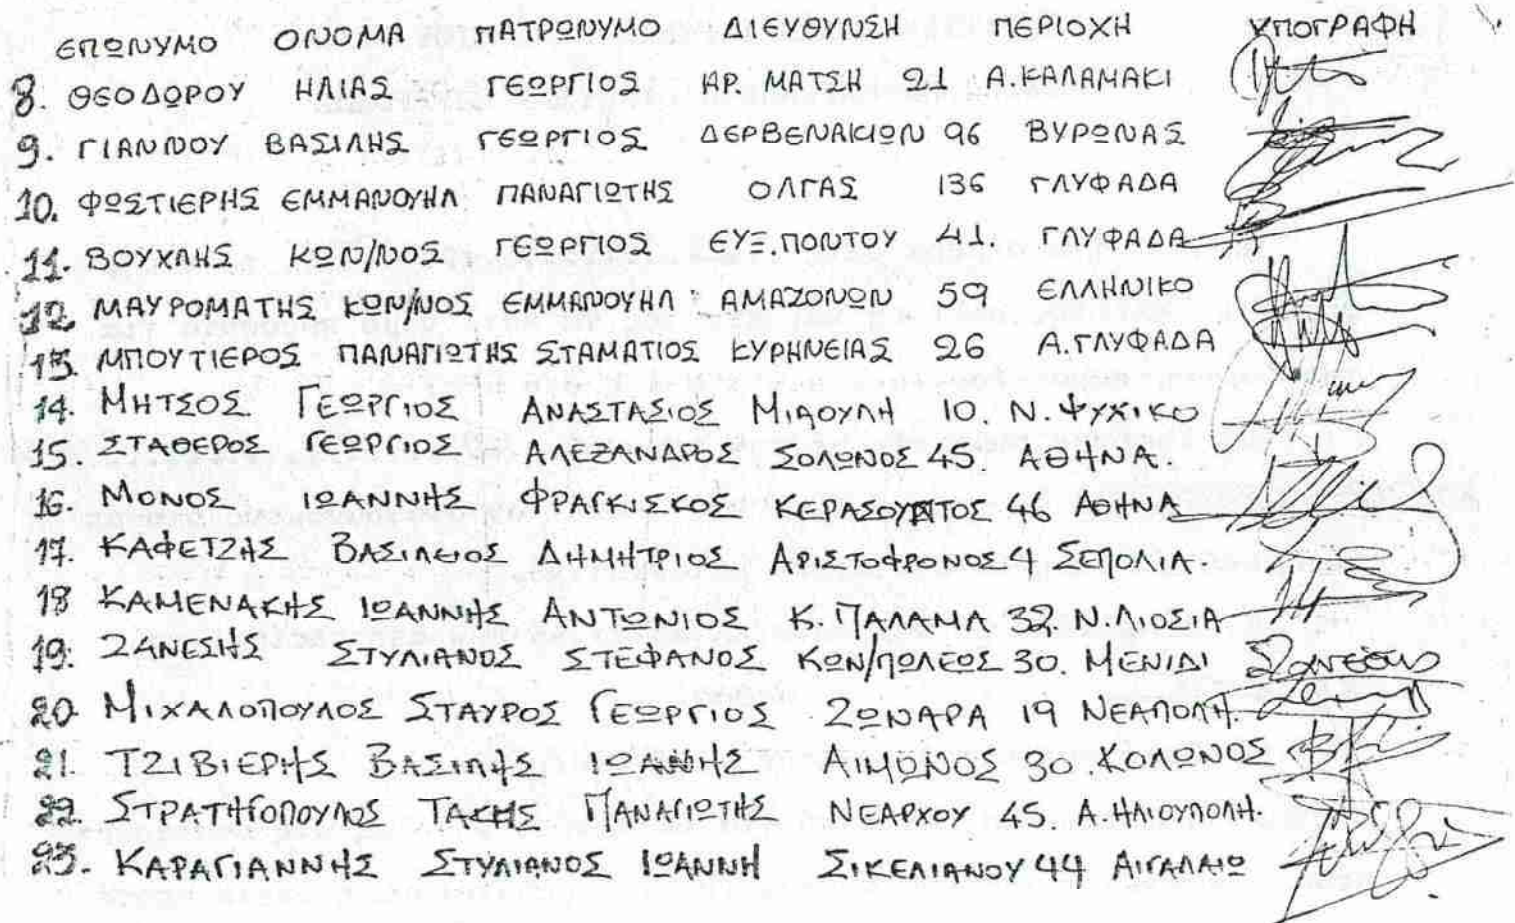 ΕΠΩΝΥΜΟ ΟΝΟΜΑ ΠΑΤΡΩΝΥΜΟ ΔΙΕΥΘΥΝΣΗ ΠΕΡΙΟΧΗ ΥΠΟΓΡΑΦΗ
8. ΘΕΟΔΩΡΟΥ ΗΛΙΑΣ ΓΕΩΡΓΙΟΣ ΚΡ. ΜΑΤΣΗ 21 Α.ΚΑΛΑΜΑΚΙ
9. ΓΙΑΝΝΟΥ ΒΑΣΙΛΗΣ ΓΕΩΡΓΙΟΣ ΔΕΡΒΕΝΑΚΙΩΝ 96 ΒΥΡΩΝΑΣ
10. ΦΩΣΤΙΕΡΗΣ ΕΜΜΑΝΟΥΗΛ ΠΑΝΑΓΙΩΤΗΣ ΟΛΓΑΣ 136 ΓΛΥΦΑΔΑ
11. ΒΟΥΧΛΗΣ ΚΩΝ/ΝΟΣ ΓΕΩΡΓΙΟΣ ΕΥΞ.ΠΟΝΤΟΥ 41. ΓΛΥΦΑΔΑ
12. ΜΑΥΡΟΜΑΤΗΣ ΚΩΝ/ΝΟΣ ΕΜΜΑΝΟΥΗΛ ΑΜΑΖΟΝΩΝ 59 ΕΛΛΗΝΙΚΟ
13. ΜΠΟΥΤΙΕΡΟΣ ΠΑΝΑΓΙΩΤΗΣ ΣΤΑΜΑΤΙΟΣ ΚΥΡΗΝΕΙΑΣ 26 Α.ΓΛΥΦΑΔΑ
14. ΜΗΤΣΟΣ ΓΕΩΡΓΙΟΣ ΑΝΑΣΤΑΣΙΟΣ ΜΙΑΟΥΛΗ 10. Ν. ΨΥΧΙΚΟ
15. ΣΤΑΘΕΡΟΣ ΓΕΩΡΓΙΟΣ ΑΛΕΞΑΝΔΡΟΣ ΣΟΛΩΝΟΣ 45. ΑΘΗΝΑ.
16. ΜΟΝΟΣ ΙΩΑΝΝΗΣ ΦΡΑΓΚΙΣΚΟΣ ΚΕΡΑΣΟΥΝΤΟΣ 46 ΑΘΗΝΑ
17. ΚΑΦΕΤΖΗΣ ΒΑΣΙΛΕΙΟΣ ΔΗΜΗΤΡΙΟΣ ΑΡΙΣΤΟΦΡΟΝΟΣ 4 ΣΕΠΟΛΙΑ.
18 ΚΑΜΕΝΑΚΗΣ ΙΩΑΝΝΗΣ ΑΝΤΩΝΙΟΣ Κ. ΠΑΛΑΜΑ 32. Ν.ΛΙΟΣΙΑ
19. ΖΑΝΕΣΗΣ ΣΤΥΛΙΑΝΟΣ ΣΤΕΦΑΝΟΣ ΚΩΝ/ΠΟΛΕΩΣ 30. ΜΕΝΙΔΙ
20 ΜΙΧΑΛΟΠΟΥΛΟΣ ΣΤΑΥΡΟΣ ΓΕΩΡΓΙΟΣ ΖΩΝΑΡΑ 19 ΝΕΑΠΟΛΗ.
21. ΤΖΙΒΙΕΡΗΣ ΒΑΣΙΛΗΣ ΙΩΑΝΝΗΣ ΑΙΜΩΝΟΣ 30. ΚΟΛΩΝΟΣ
22. ΣΤΡΑΤΗΓΟΠΟΥΛΟΣ ΤΑΚΗΣ ΠΑΝΑΓΙΩΤΗΣ ΝΕΑΡΧΟΥ 45. Α.ΗΛΙΟΥΠΟΛΗ.
23. ΚΑΡΑΓΙΑΝΝΗΣ ΣΤΥΛΙΑΝΟΣ ΙΩΑΝΝΗ ΣΙΚΕΛΙΑΝΟΥ 44 ΑΙΓΑΛΑΙΩ